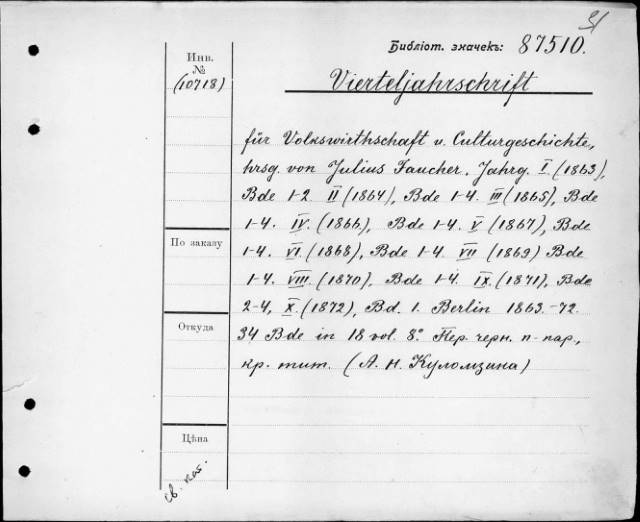 Библіот. значекъ: 87510.
Инв.
№
(10718)
Vierteljahrschrift
für Volkswirthschaft u. Culturgeschichte,
hrsg. von Julius Faucher. Jahrg. I. (1863),
Bde 1-2. II (1864), Bde 1-4. III (1865), Bde
1-4. IV. (1866), Bde 1-4. V. (1867), Bde
1-4. VI. (1868), Bde 1-4. VII (1869) Bde
1-4. VIII. (1870), Bde 1-4. IX. (1871), Bde
2-4, X. (1872), Bd. 1. Berlin 1863.-72.
34 Bde in 18 vol. 8.° Пер. черн. п-пар.,
кр. тит. (А. Н. Куломзина)
По заказу
Откуда
Цѣна
св. кат.